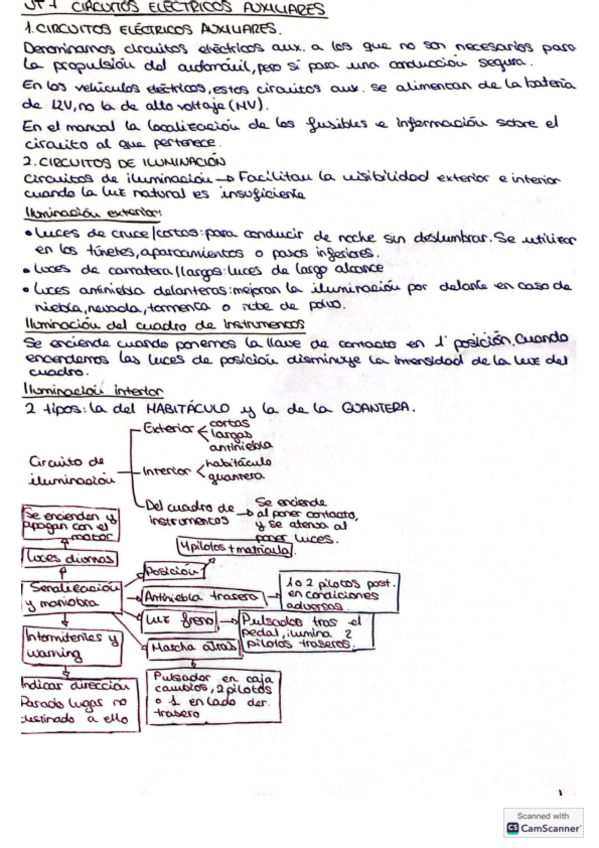 UT 1 CIRCUITOS ELÉCTRICOS AUXILIARES
1. CIRCUITOS ELÉCTRICOS AUXILIARES.
Denominamos circuitos eléctricos aux. a los que no son necesarios para
la propulsión del automóvil, pero sí para una conducción segura.
En los vehículos eléctricos, estos circuitos aux. se alimentan de la batería
de 12V, no la de alto voltaje (HV).
En el manual la localización de los fusibles e información sobre el
circuito al que pertenece.
2. CIRCUITOS DE ILUMINACIÓN
Circuitos de iluminación → Facilitan la visibilidad exterior e interior
cuando la luz natural es insuficiente
Iluminación exterior:
• Luces de cruce/cortas: para conducir de noche sin deslumbrar. Se utilizan
en los túneles, aparcamientos o pasos inferiores.
• Luces de carratera/largas: luces de largo alcance
• Luces antiniebla delanteras: mejoran la iluminación por delante en caso de
niebla, nevada, tormenta o nube de polvo.
Iluminación del cuadro de instrumentos
Se enciende cuando ponemos la llave de contacto en 1ª posición. Cuando
encendemos las luces de posición disminuye la intensidad de la luz del
cuadro.
Iluminación interior
2 tipos: la del HABITÁCULO y la de la GUANTERA.
Circuito de iluminación
Exterior < cortas
largas
antiniebla
Interior < habitáculo
guantera
Del cuadro de instrumentos → Se enciende
al poner contacto,
y se atenúa al
poner luces.
Se encienden y
apagan con el
motor
Luces diurnas
Señalización
y maniobra
Intermitentes y
warning
Indicar dirección
Parado lugar no
destinado a ello
4 pilotos + matrícula
Posición
Antiniebla trasero → 1 o 2 pilotos post.
en condiciones
adversas.
Luz freno → Pulsados tras el
pedal, ilumina 2
pilotos traseros.
Marcha atrás
Pulsador en caja
cambios, 2 pilotos
o 1 en lado der.
trasero
1
Scanned with
CS CamScanner